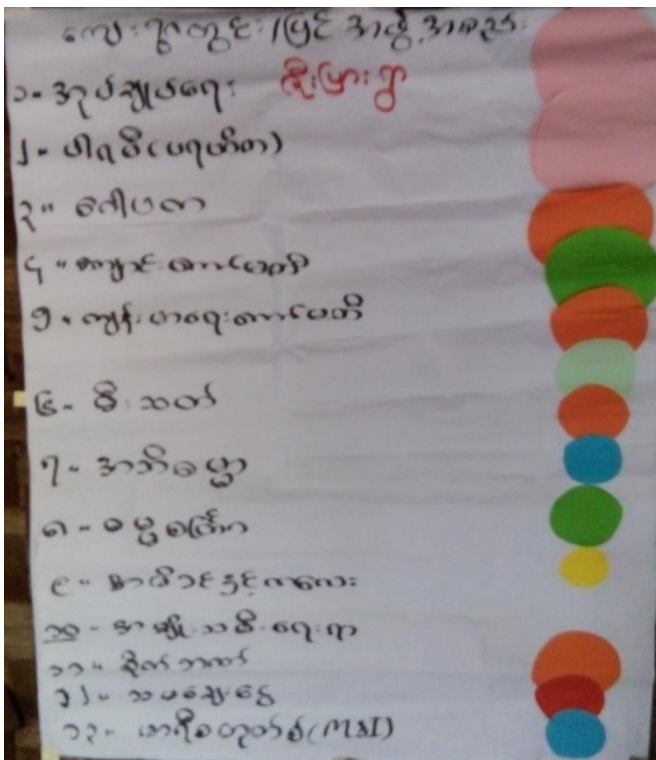 ကျေးရွာတွင်း/ပြင် အဖွဲ့အစည်း
၁- အုပ်ချုပ်ရေး
၂- ပါရမီ (ပရဟိတ)
၃။ ဒေါပကာ
၄။ ကျောင်းကော်မတီ
၅။ ကျန်းမာရေးကော်မတီ
၆- မီးသတ်
၇- အဘိဓမ္မာ
၈- ဓမ္မစကြာ
၉။ မိခင်နှင့်ကလေး
၁၀- အမျိုးသမီးရေးရာ
၁၁။ စိုက်ဘဏ်
၁၂။ သမချေးငွေ
၁၃။ (MSI)